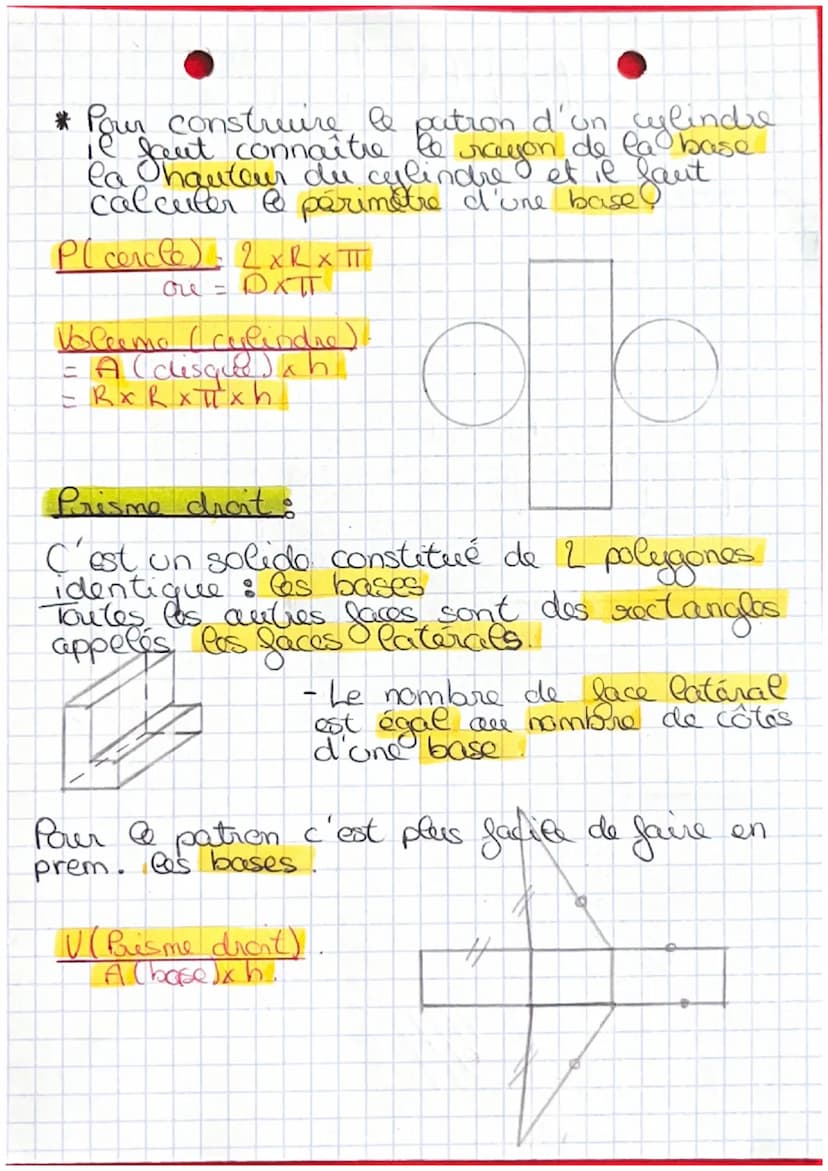 * Pour construire le patron d'un cylindre
il faut connaître le rayon de la base
la hauteur du cylindre et il faut
calculer le périmètre d'une base
P(cercle) = 2 x R x π
ou = D x π
Volume (cylindre)
= A (disque) x h
= R x R x π x h
Prisme droit :
C'est un solide constitué de 2 polygones
identique : les bases
Toutes les autres faces sont des rectangles
appelés les faces latérals.
- Le nombre de face latéral
est égal au nombre de côtés
d'une base.
Pour le patron c'est plus facile de faire en
prem. les bases.
V (Prisme droit)
A (base) x h.